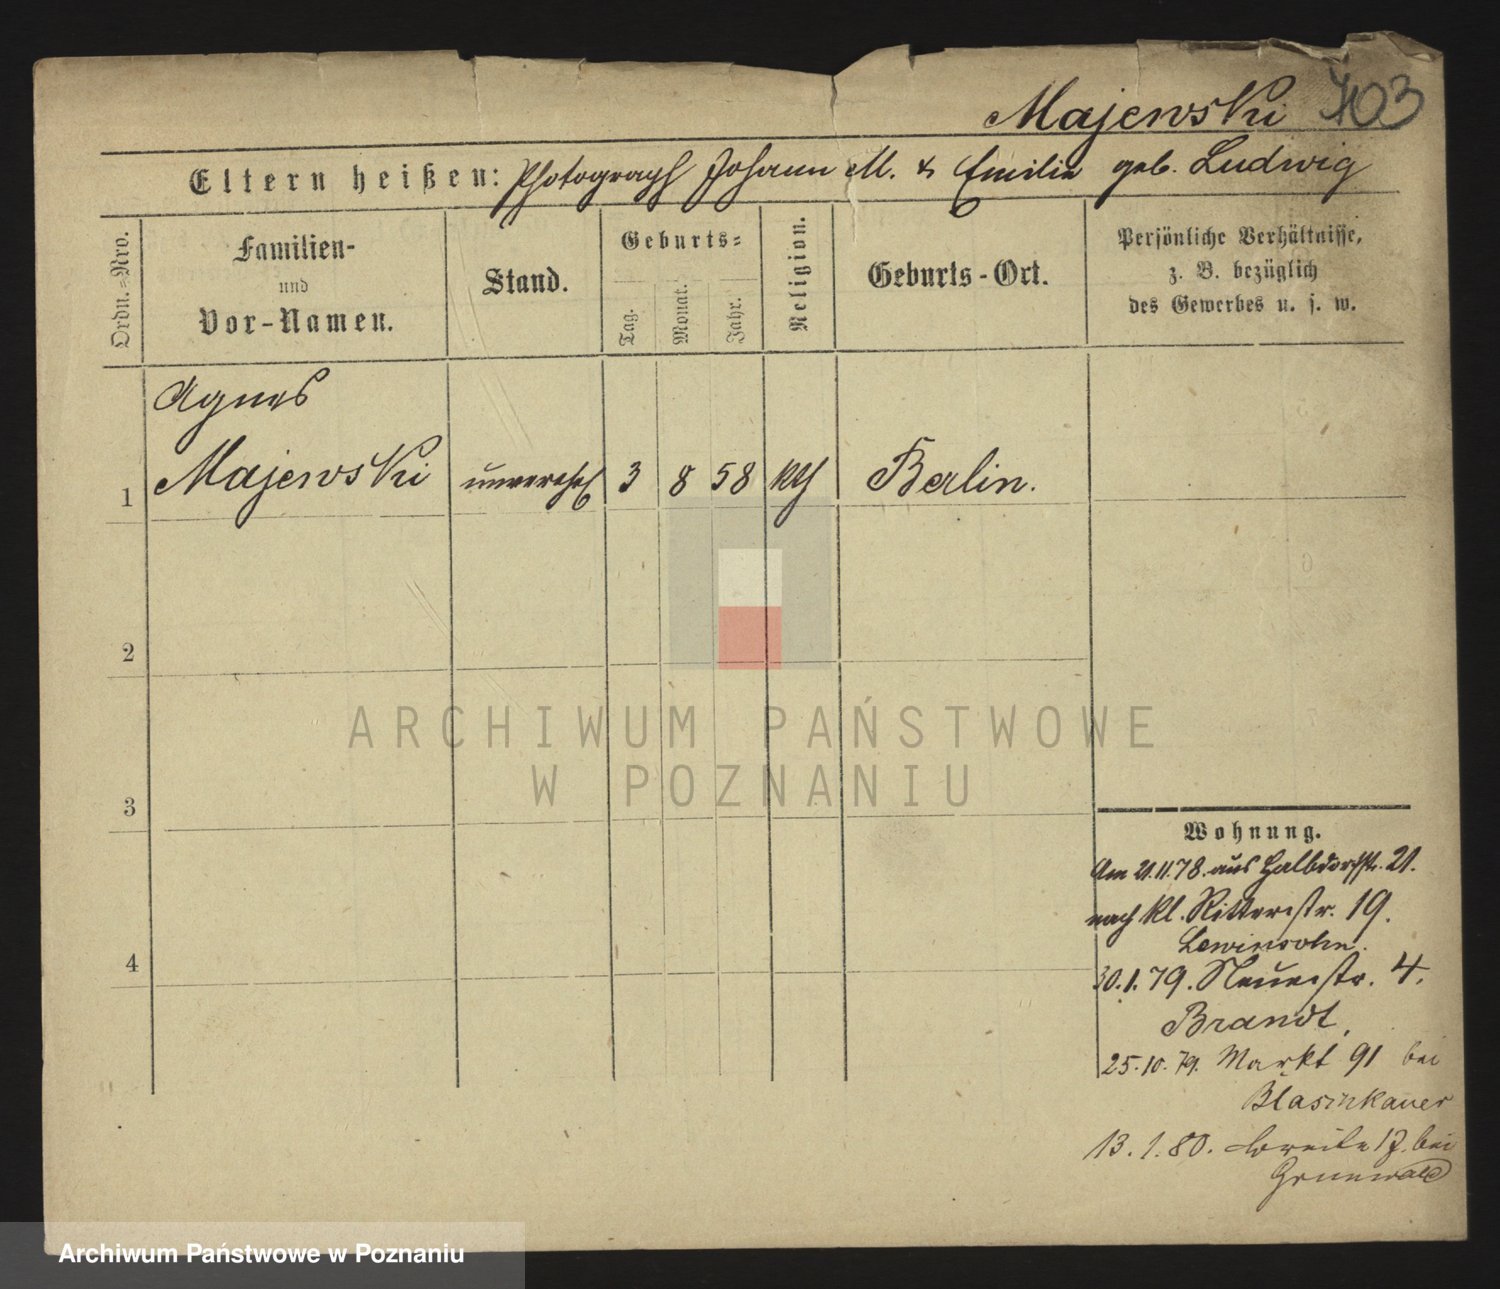 Majewski 703
Eltern heißen: Photograph Johann M. & Emilie geb. Ludwig
Ordn.=Nro.
Familien-
und
Vor-Namen.
Stand.
Geburts=
Tag.
Monat.
Jahr.
Religion.
Geburts-Ort.
Persönliche Verhältnisse,
z. B. bezüglich
des Gewerbes u. s. w.
Agnes
1 Majewski unverehel 3 8 58 kth Berlin.
2
ARCHIWUM PAŃSTWOWE
W POZNANIU
3
4
Wohnung.
Am 21.11.78. aus Halbdorfstr. 21.
nach kl. Ritterstr. 19.
Lewinsohn.
30.1.79. Neuestr. 4.
Brandt.
25.10.79. Markt 91 bei
13.1.80. Breite 17. bei
Grunwald
Archiwum Państwowe w Poznaniu